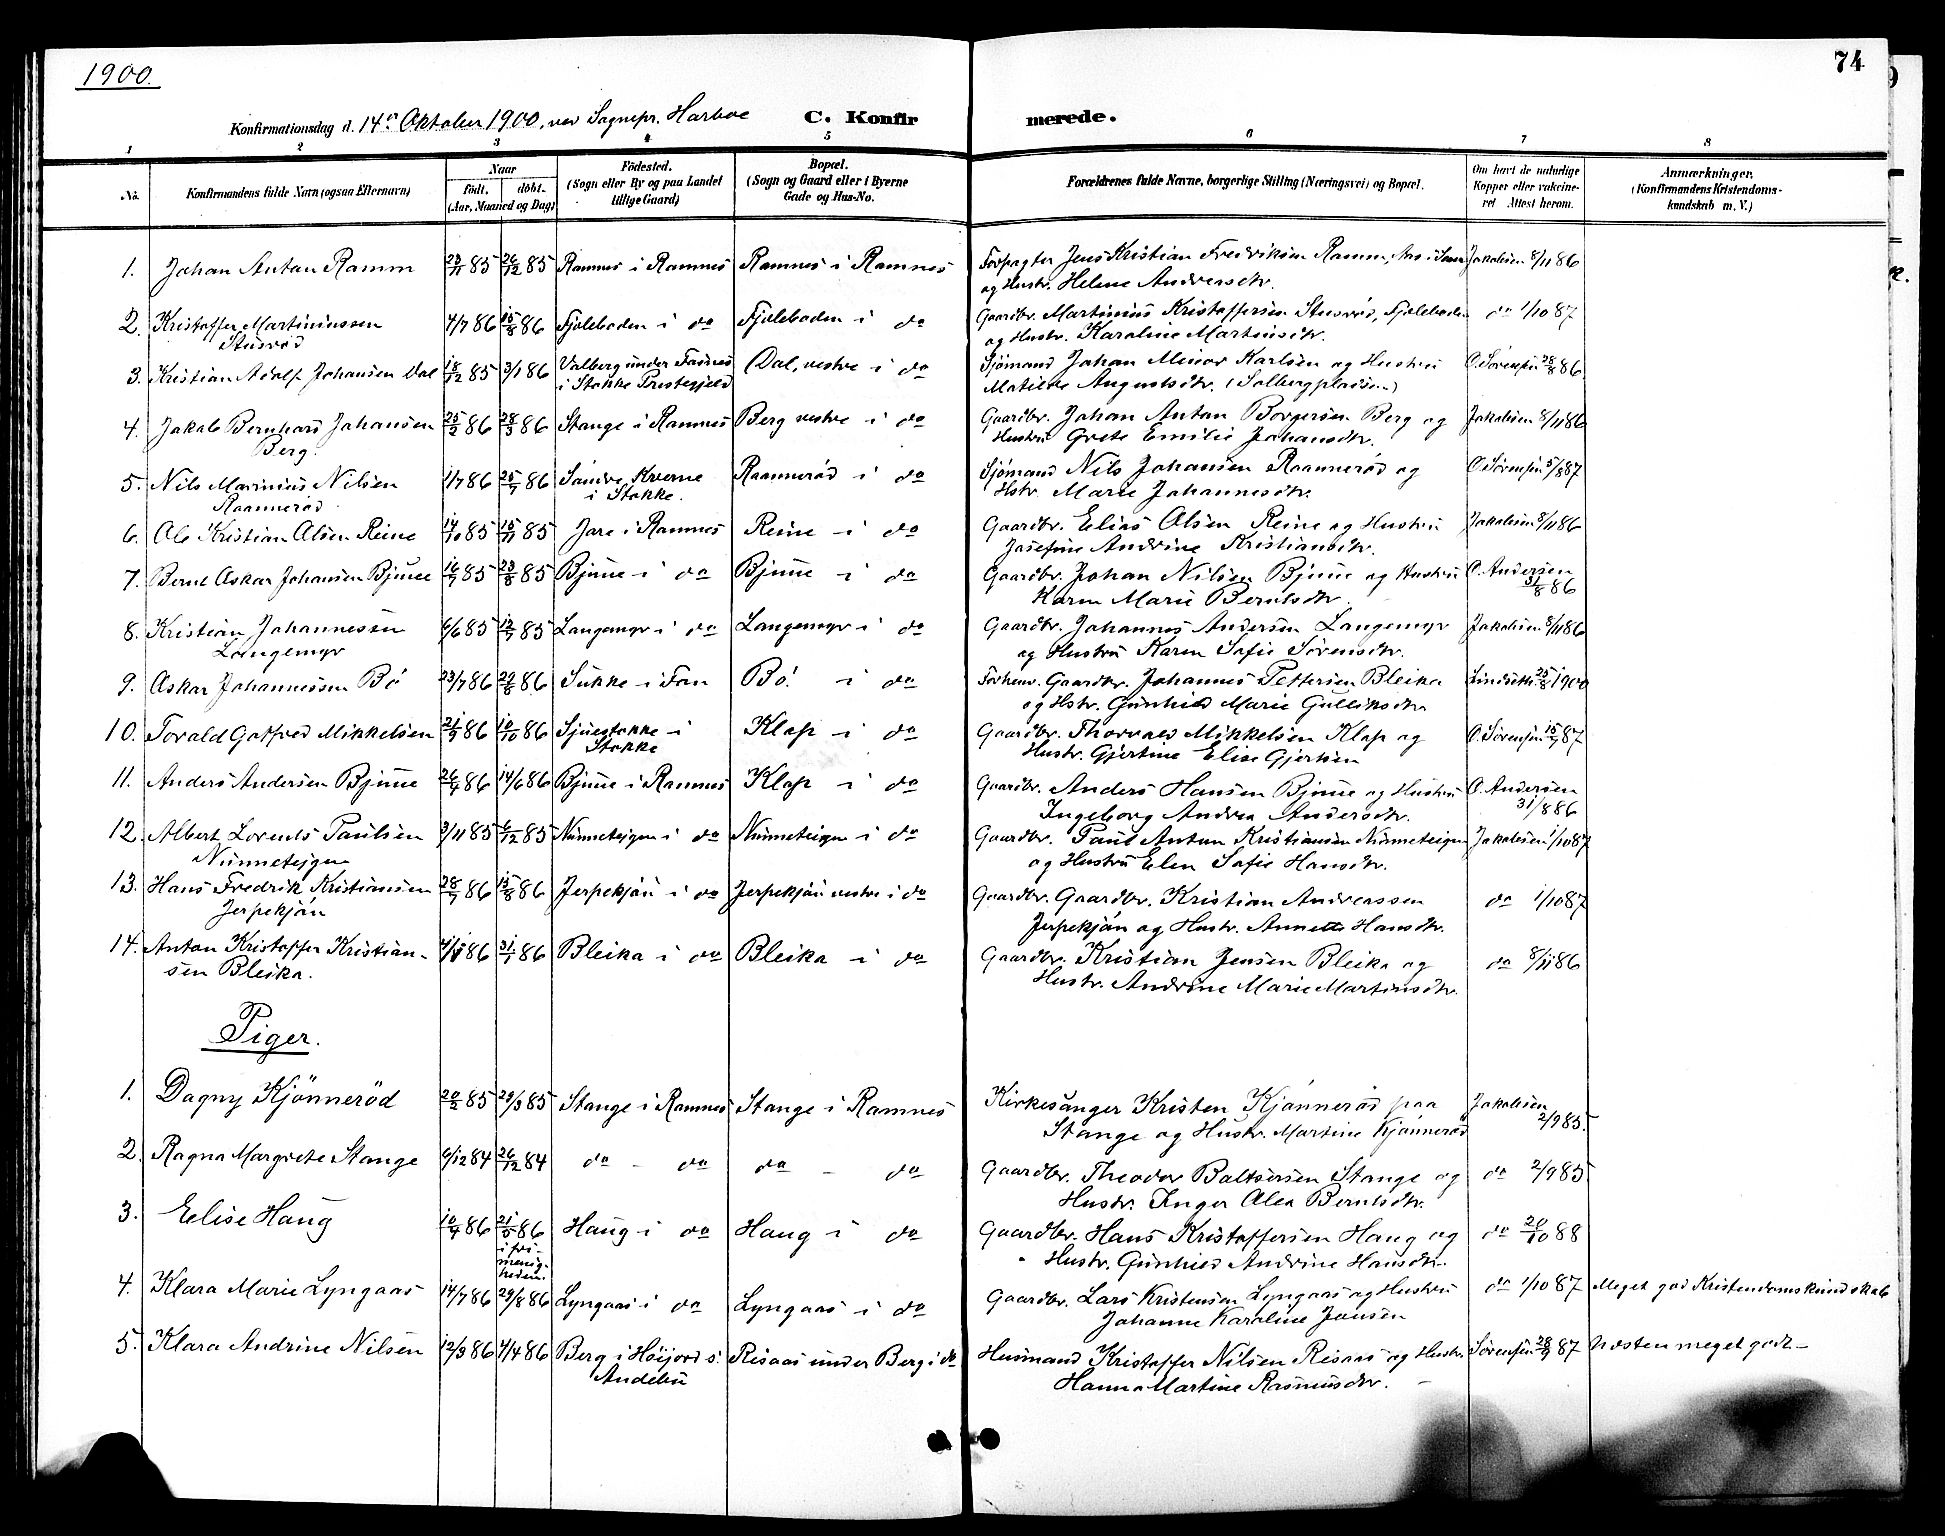 1900.
74
Konfirmationsdag d. 14de Oktober 1900, ved Sognepr. Harboe C. Konfirmerede.
1 2 3 4 5 6 7 8
No. Konfirmandens fulde Navn (ogsaa Efternavn) Naar födt. döbt. (Aar, Maaned og Dag) Födested. (Sogn eller By og paa Landet tillige Gaard) Bopæl. (Sogn og Gaard eller i Byerne Gade og Hus-No. Forældrenes fulde Navne, borgerlige Stilling (Næringsvei) og Bopæl. Om havt de naturlige Kopper eller vakcineret Attest herom. Anmærkninger. (Konfirmandens Kristendomskundskab m. V.)
1. Johan Anton Ramm 23/11 85 26/12 85 Ramnes i Ramnes Ramnes i Ramnes Forpagter Jens Kristian Fredriksen Ramm, Jakobsen 8/11 86
og Hustr. Helene Andersdtr.
2. Kristoffer Martiniussen 4/7 86 15/8 86 Fjeleboden i do Fjeleboden i do Gaardbr. Martinius Kristoffersen Stusröd, Fjeleboden do 1/10 87
Stusröd og Hustr. Karoline Martinsdtr.
3. Kristian Adolf Johansen Dal 18/12 85 3/1 86 Valberg under Fosnes Dal, vestre i do Sjömand Johan Minor Karlsen og Hustru O. Sörensen 28/8 86
i Stokke Prestegjeld Matilde Augustsdtr. (Solbergpladsen)
4. Jakob Bernhard Johansen 25/2 86 28/3 86 Stange i Ramnes Berg vestre i do Gaardbr. Johan Anton Borgersen Berg og Jakobsen 8/11 86
Berg. Hustru Grete Emilie Johansdtr.
5. Nils Marinius Nilsen 1/7 86 25/7 86 Sandve Kverne Raanneröd i do Sjömand Nils Johansen Raanneröd og O. Sörensen 5/8 87
Raanneröd i Stokke. Hstr. Marie Johannesdtr.
6. Ole Kristian Olsen Reine 14/10 85 15/11 85 Jare i Ramnes Reine i do Gaardbr. Elias Olsen Reine og Hustru Jakobsen 8/11 86
Josefine Andrine Kristiansdtr.
7. Bernt Oskar Johansen Bjune 16/7 85 23/8 85 Bjune i do Bjune i do Gaardbr. Johan Nilsen Bjune og Hustru O. Andersen
Karen Marie Berntsdtr. 31/8 86
8. Kristian Johannessen 6/6 85 12/7 85 Langemyr i do Langemyr i do Gaardbr. Johannes Andersen Langemyr Jakobsen 8/11 86
Langemyr og Hustru Karen Sofie Sörensdtr.
9. Oskar Johannessen Bö 23/7 86 29/8 86 Sukke i Fon Bö. i do Forhenv. Gaardbr. Johannes Pettersen Bleika Lindseth 25/8 1900
og Hstr. Gunhild Marie Gulliksdtr
10. Torald Gotfred Mikkelsen 21/9 86 10/10 86 Sjuestokke i Klop i do Gaardbr. Thorvald Mikkelsen Klop og O. Sörensen 15/7 87
Stokke Hustr. Gjertine Elise Gjertsen
11. Anders Andersen Bjune 26/4 86 14/6 86 Bjune i Ramnes Klop i do Gaardbr. Anders Hansen Bjune og Hustru O. Andersen
Ingeborg Andrea Andersdtr. 31/8 86
12. Albert Lorents Paulsen 3/11 85 6/12 85 Nunneteigen i do Nunneteigen i do Gaardbr. Paul Anton Kristiansen Nunneteigen Jakobsen 1/10 87
Nunneteigen og Hustru Elen Sofie Hansdtr.
13. Hans Fredrik Kristiansen 28/7 86 15/8 86 Jerpekjön i do Jerpekjön vestre i do Gaardbr. Gaardbr. Kristian Andreassen do 1/10 87
Jerpekjön Jerpekjön og Hustr. Annette Hansdtr.
14. Anton Kristoffer Kristian- 86 31/1 86 Bleika i do Bleika i do Gaardbr. Kristian Jensen Bleika og do 8/11 86
sen Bleika. Hustr. Andrine Marie Martinsdtr.
Piger.
1. Dagny Kjönneröd 20/2 85 29/3 85 Stange i Ramnes Stange i Ramnes Kirkesanger Kristen Kjönneröd paa Jakobsen
Stange og Hustr. Martine Kjönneröd 2/9 85.
2. Ragna Margrete Stange 6/12 84 26/12 84 do - do do - do Gaardbr. Theodor Baltsersen Stange og do 2/9 85
Hustr. Inger Olea Berntsdtr.
3. Elise Haug 10/4 86 21/5 86 Haug i do Haug i do Gaardbr. Hans Kristoffersen Haug og do 20/10 88
i fri-
menig-
heden. Hustr. Gunhild Andrine Hansdtr.
4. Klara Marie Lyngaas 14/7 86 29/8 86 Lyngaas i do Lyngaas i do Gaardbr. Lars Kristensen Lyngaas og Hustru do 1/10 87 Meget god Kristendomskundskab
Johanne Karoline Jonsen
5. Klara Andrine Nilsen 12/3 86 4/4 86 Berg i Höijord s. Risaas under Berg i do Husmand Kristoffer Nilsen Risaas og Hustr. Sörensen 28/9 87 Næsten meget godt
Andebu Hanna Martine Rasmusdtr.